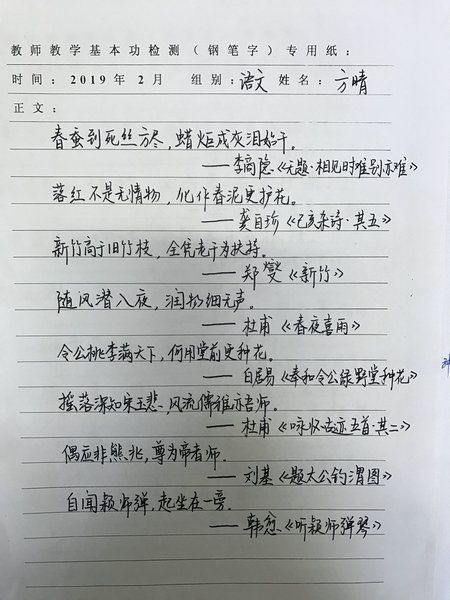 教师教学基本功检测（钢笔字）专用纸：
时间：2019年2月 组别：语文 姓名：方晴
正文：
春蚕到死丝方尽，蜡炬成灰泪始干。
——李商隐《无题·相见时难别亦难》
落红不是无情物，化作春泥更护花。
——龚自珍《己亥杂诗·其五》
新竹高于旧竹枝，全凭老干为扶持。
——郑燮《新竹》
随风潜入夜，润物细无声。
——杜甫《春夜喜雨》
令公桃李满天下，何用堂前更种花。
——白居易《奉和令公绿野堂种花》
摇落深知宋玉悲，风流儒雅亦吾师。
——杜甫《咏怀古迹五首·其二》
偶应非熊兆，尊为帝者师。
——刘基《题太公钓渭图》
自闻颖师弹，起坐在一旁。
——韩愈《听颖师弹琴》